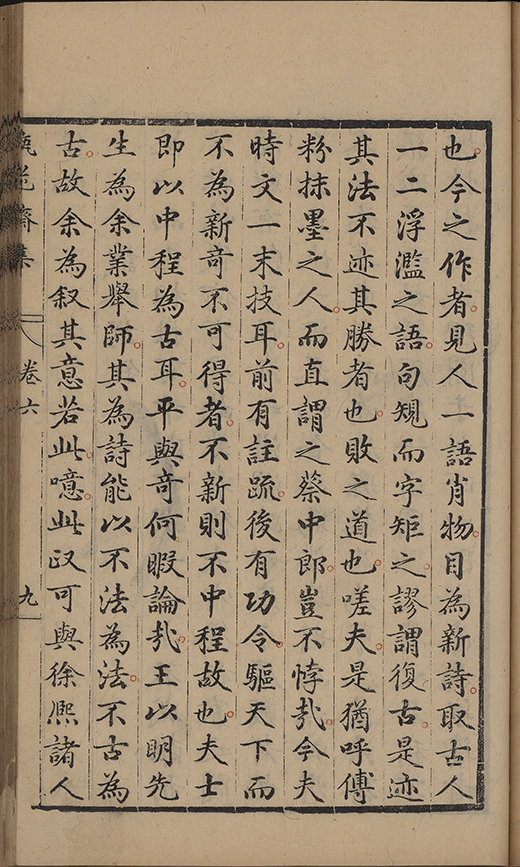 也今之作者見人一語肖物目為新詩取古人
一二浮濫之語句規而字矩之謬謂復古是迹
其法不迹其勝者也敗之道也嗟夫是猶呼傅
粉抹墨之人而直謂之蔡中郎豈不悖哉今夫
時文一末技耳前有註疏後有功令驅天下而
不為新奇不可得者不新則不中程故也夫士
即以中程為古耳平與奇何暇論哉王以明先
生為余業舉師其為詩能以不法為法不古為
古故余為叙其意若此噫此政可與徐熈諸人
瓶花齋集 卷六 九